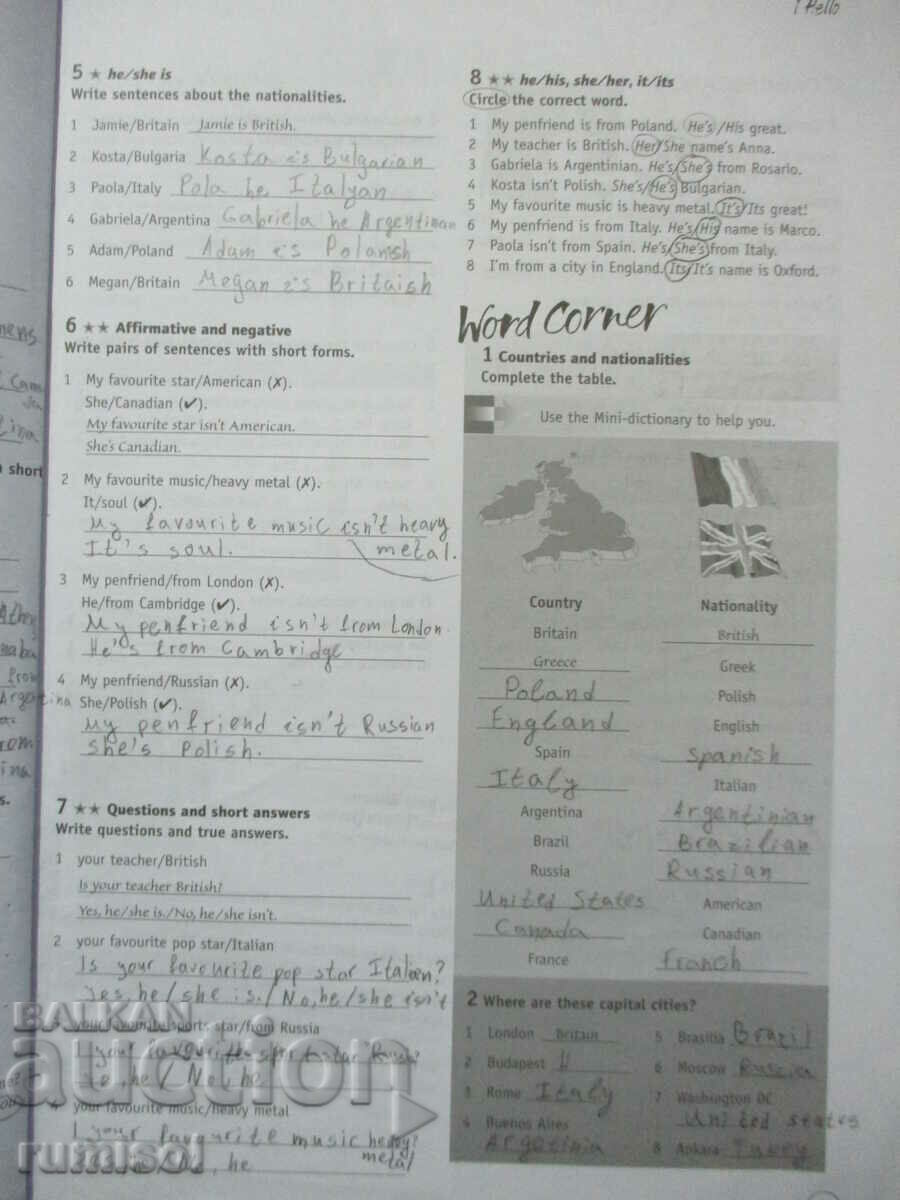 1 Hello
5 ★ he/she is
Write sentences about the nationalities.
1 Jamie/Britain Jamie is British.
2 Kosta/Bulgaria Kosta is Bulgarian
3 Paola/Italy Pola he Italyan
4 Gabriela/Argentina Gabriela he Argentinan
5 Adam/Poland Adam is Polansh
6 Megan/Britain Megan is Britaish
6 ★★ Affirmative and negative
Write pairs of sentences with short forms.
1 My favourite star/American (✗).
She/Canadian (✔).
My favourite star isn't American.
She's Canadian.
2 My favourite music/heavy metal (✗).
It/soul (✔).
My favourite music isn't heavy
It's soul. metal.
3 My penfriend/from London (✗).
He/from Cambridge (✔).
My penfriend isn't from London.
He's from Cambridge.
4 My penfriend/Russian (✗).
She/Polish (✔).
My penfriend isn't Russian
She's Polish.
7 ★★ Questions and short answers
Write questions and true answers.
1 your teacher/British
Is your teacher British?
Yes, he/she is./No, he/she isn't.
2 your favourite pop star/Italian
Is your favourite pop star Italian?
Yes, he/she is./No, he/she isn't
3 your favourite sports star/from Russia
I your favourites sport star
, he / No, he
4 your favourite music/heavy metal
I your favourite music heavy?
metal
, he
8 ★★ he/his, she/her, it/its
Circle the correct word.
1 My penfriend is from Poland. He's/His great.
2 My teacher is British. Her/She name's Anna.
3 Gabriela is Argentinian. He's/She's from Rosario.
4 Kosta isn't Polish. She's/He's Bulgarian.
5 My favourite music is heavy metal. It's/Its great!
6 My penfriend is from Italy. He's/His name is Marco.
7 Paola isn't from Spain. He's/She's from Italy.
8 I'm from a city in England. Its/It's name is Oxford.
Word Corner
1 Countries and nationalities
Complete the table.
Use the Mini-dictionary to help you.
Country Nationality
Britain British
Greece Greek
Poland Polish
England English
Spain Spanish
Italy Italian
Argentina Argentinian
Brazil Brazilian
Russia Russian
United States American
Canada Canadian
France Franch
2 Where are these capital cities?
1 London BRITAIN
2 Budapest H
3 Rome Italy
4 Buenos Aires
Argetinia
5 Brasilia Brazil
6 Moscow Russia
7 Washington DC
United states
8 Ankara
BALKAN
auction
rumisol